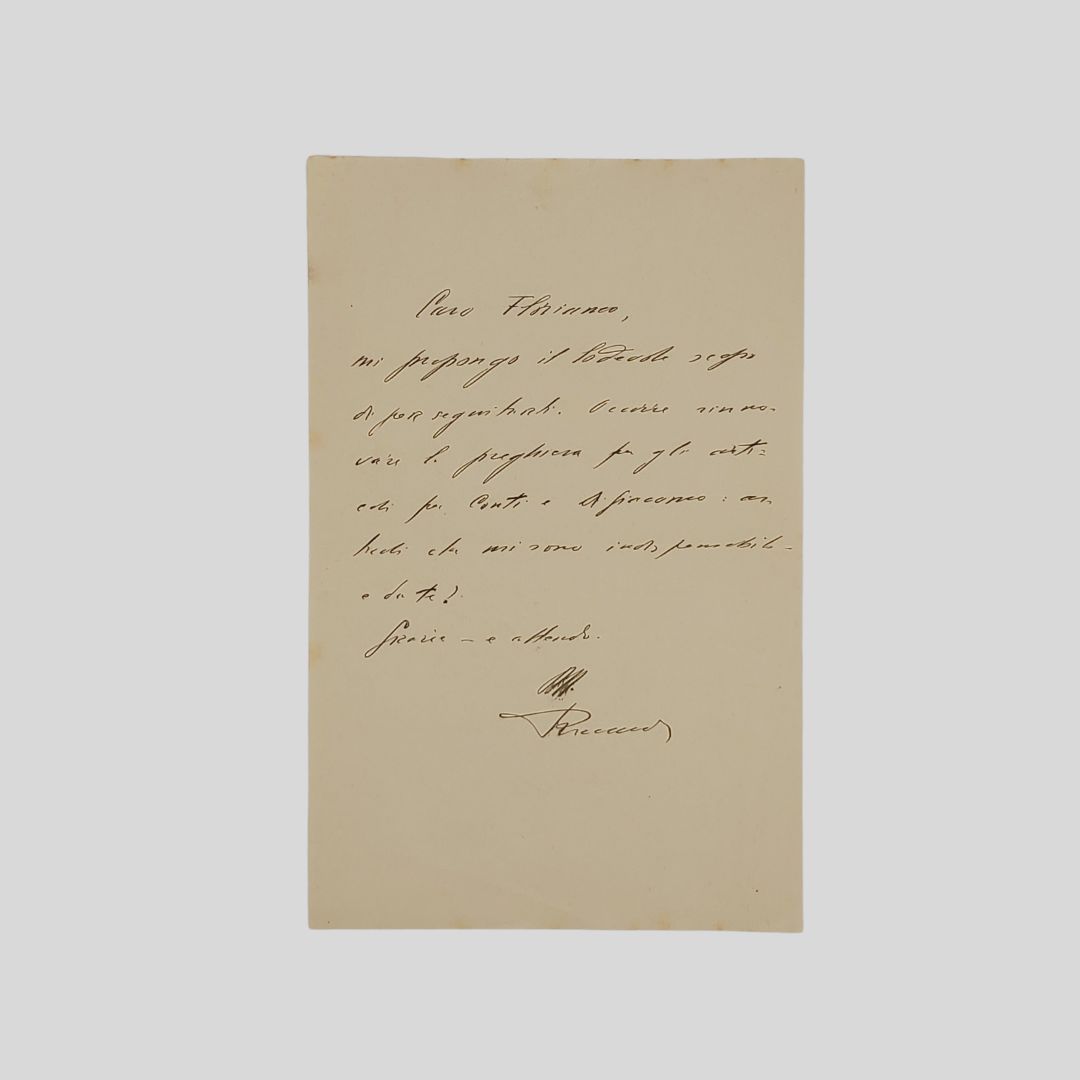 Caro Floriano,
mi propongo il lodevole scopo
di perseguitarti. Occorre rinno-
vare la preghiera per gli arti=
coli per Conti e Di Giacomo:
che mi sono indispensabili
e da te?
Grazie – e attendo.
Aff.